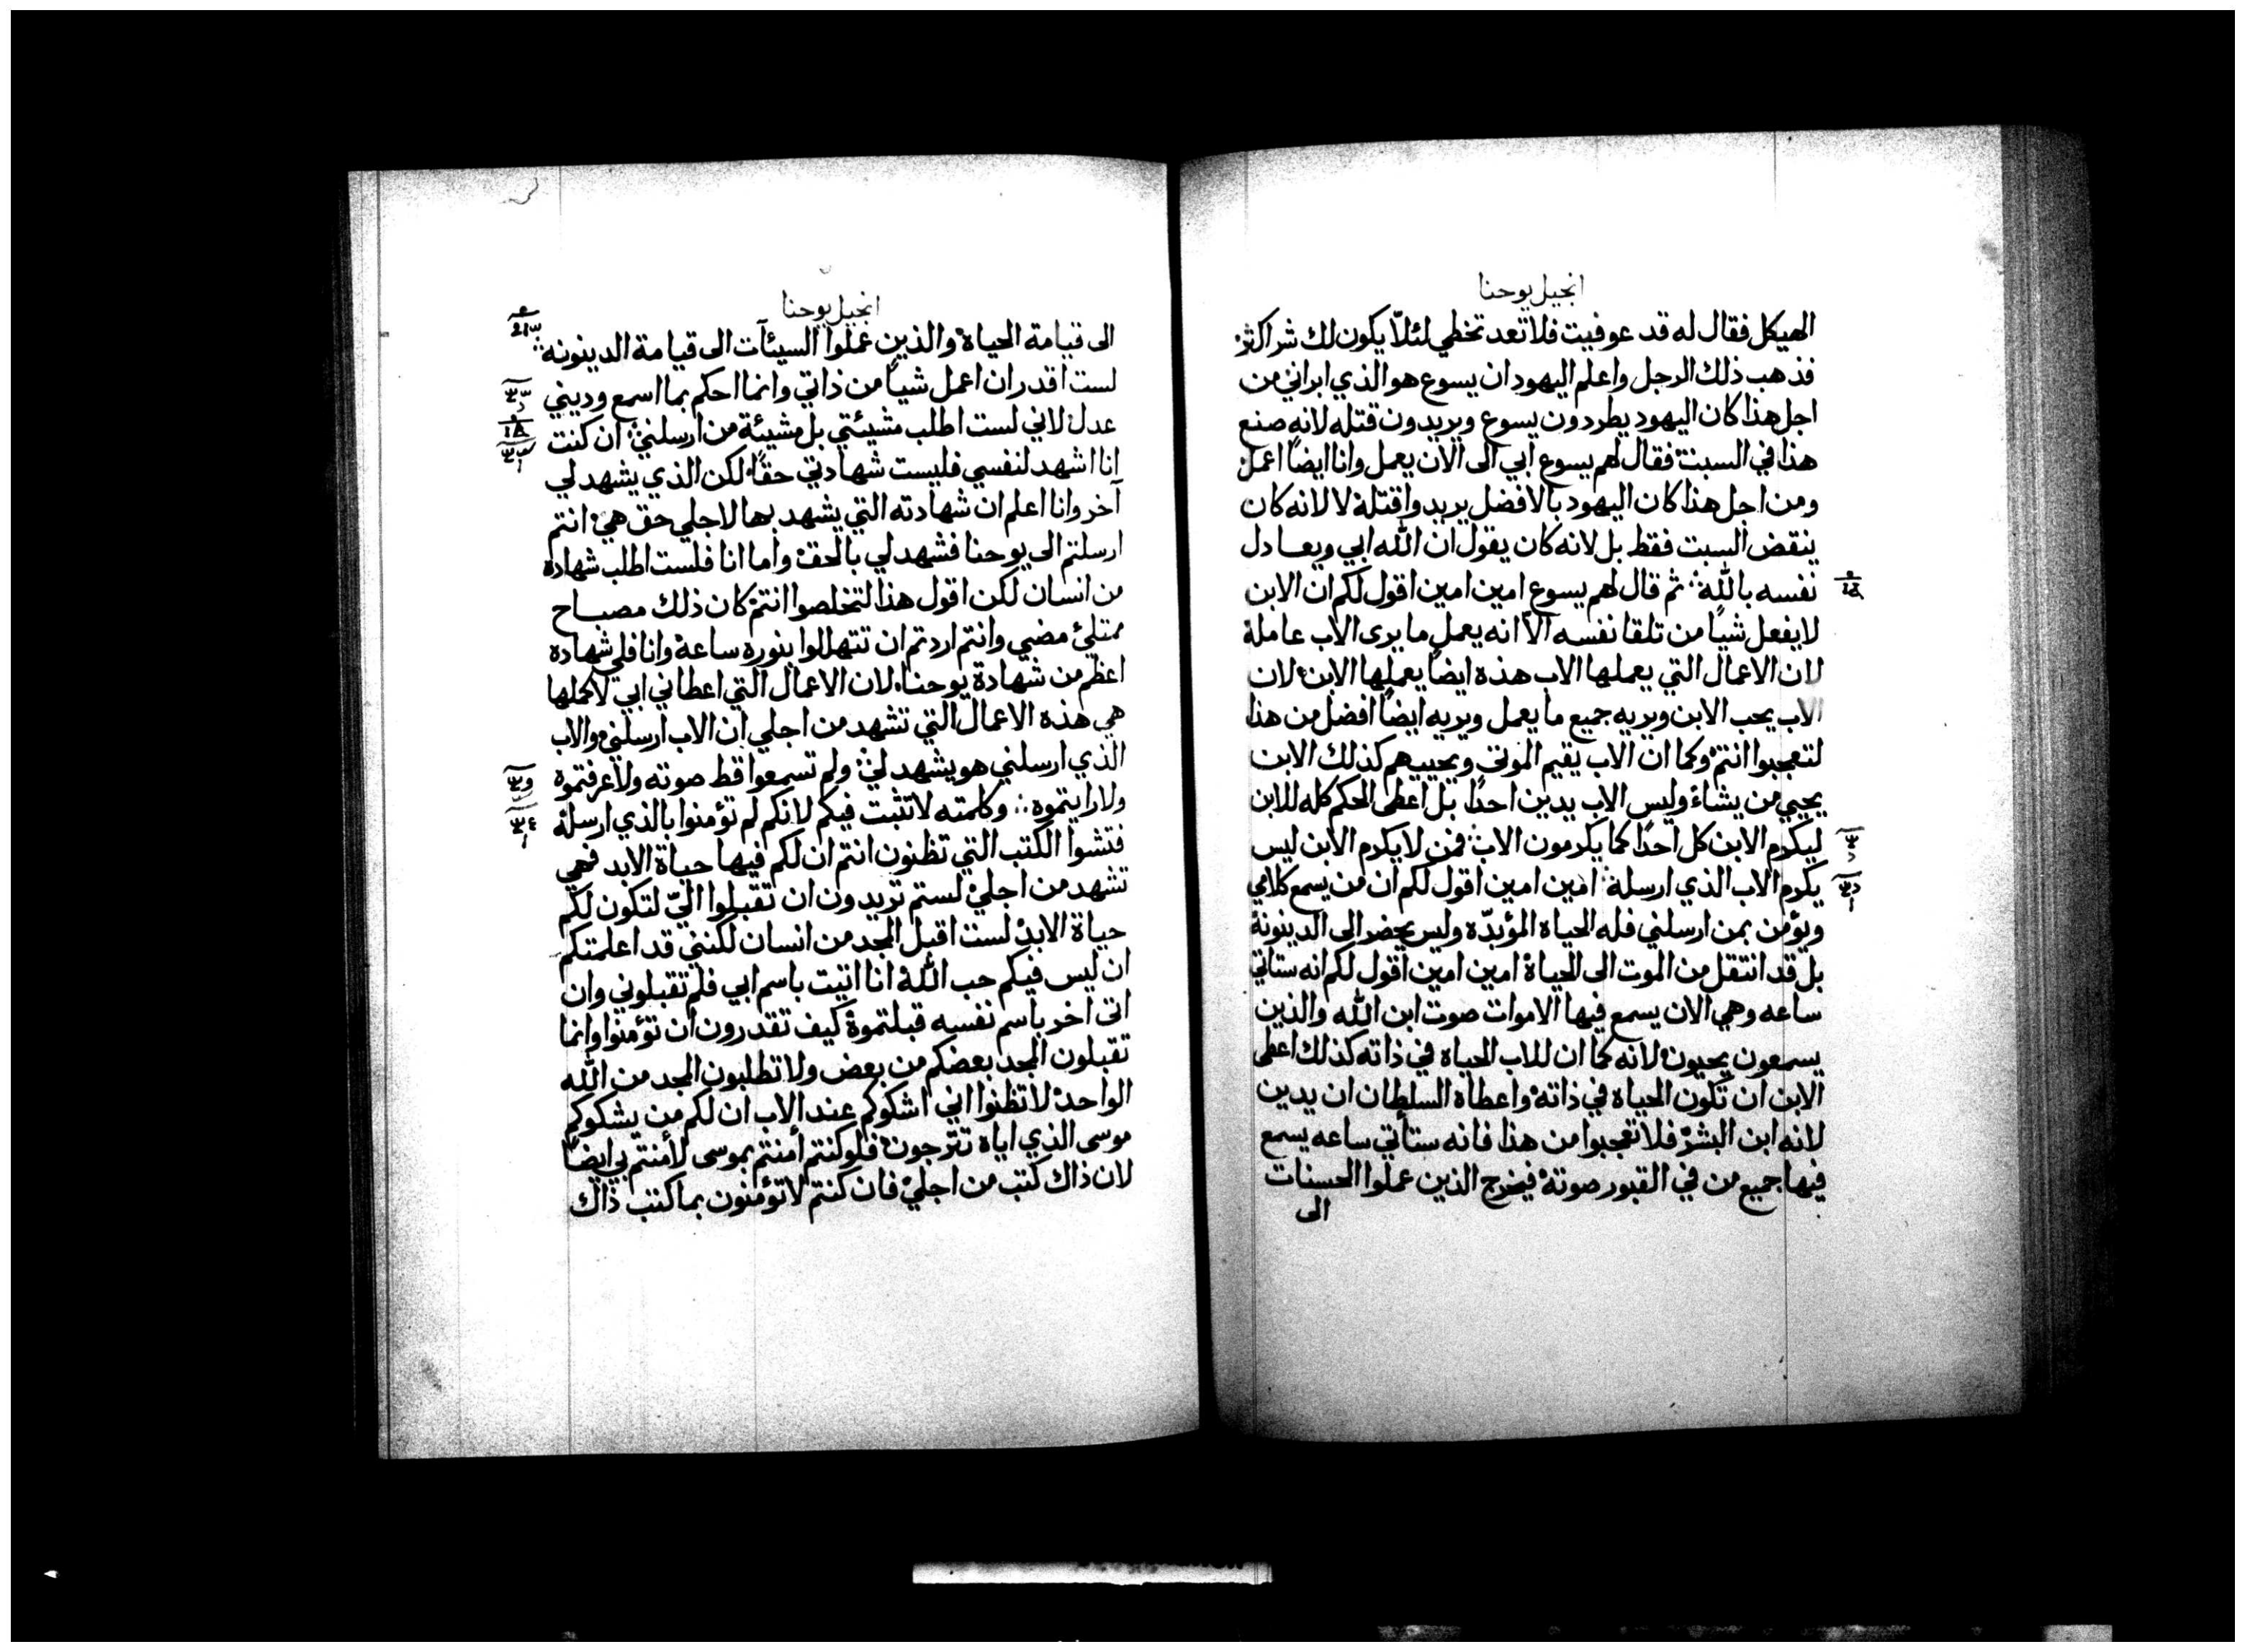 انجيل يوحنا
الهيكل فقال له قد عوفيت فلا تعد تخطي لئلّا يكون لك شر اكثر
فذهب ذلك الرجل واعلم اليهود ان يسوع هو الذي ابراني من
اجل هذا كان اليهود يطردون يسوع ويريدون قتله لانه صنع
هذا في السبت فقال لهم يسوع ابي الى الان يعمل وانا ايضًا اعمل
ومن اجل هذا كان اليهود بالافضل يريدوا قتله لا لانه كان
ينقض السبت فقط بل لانه كان يقول ان الله ابي ويعادل
نفسه بالله ثم قال لهم يسوع امين امين اقول لكم ان الابن
لا يفعل شيًا من تلقا نفسه الّا انه يعمل ما يرى الاب عامله
لان الاعمال التي يعملها الاب هذه ايضًا يعملها الابن لان
الاب يحب الابن ويريه جميع ما يعمل ويريه ايضًا افضل من هذا
لتعجبوا انتم وكما ان الاب يقيم الموتى ويحييهم كذلك الابن
يحيي من يشاء وليس الاب يدين احدًا بل اعطى الحكم كله للابن
ليكرم الابن كل احدًا كما يكرمون الاب فمن لا يكرم الابن ليس
يكرم الاب الذي ارسله امين امين اقول لكم ان من يسمع كلامي
ويؤمن بمن ارسلني فله الحياه المؤبدّه وليس يحضر الى الدينونة
بل قد انتقل من الموت الى الحياة امين امين اقول لكم انه ستاتي
ساعه وهي الان يسمع فيها الاموات صوت ابن الله والذين
يسمعون يحيون لانه كما ان للاب الحياه في ذاته كذلك اعطى
الابن ان تكون الحياه في ذاته واعطاه السلطان ان يدين
لانه ابن البشر فلا تعجبوا من هذا فانه ستأتي ساعه يسمع
فيها جميع من في القبور صوته فيخرج الذين عملوا الحسنات
الى
انجيل يوحنا
الى قيامة الحياة والذين عملوا السيئآت الى قيامة الدينونه
لست اقدر ان اعمل شيًا من ذاتي وانما احكم بما اسمع وديني
عدل لاني لست اطلب مشيئتي بل مشيئة من ارسلني ان كنت
انا اشهد لنفسي فليست شهادتي حقًا لكن الذي يشهد لي
آخر وانا اعلم ان شهادته التي يشهد بها لاجلي حق هي انتم
ارسلتم الى يوحنا فشهد لي بالحق واما انا فلست اطلب شهادة
من انسان لكن اقول هذا لتخلصوا انتم كان ذلك مصباح
ممتلئ مضي وانتم اردتم ان تتهللوا بنوره ساعة وانا فلي شهادة
اعظم من شهادة يوحنا لان الاعمال التي اعطاني ابي لاكملها
هي هذه الاعمال التي تشهد من اجلي ان الاب ارسلني والاب
الذي ارسلني هو يشهد لي ولم تسمعوا قط صوته ولا عرفتموه
ولا رايتموه وكلمته لا تثبت فيكم لانكم لم تؤمنوا بالذي ارسله
فتشوا الكتب التي تظنون انتم ان لكم فيها حياة الابد فهي
تشهد من اجلي لستم تريدون ان تقبلوا اليّ لتكون لكم
حياة الابد لست اقبل المجد من انسان لكنني قد اعلمتكم
ان ليس فيكم حب الله انا اتيت باسم ابي فلم تقبلوني وان
اتى اخر باسم نفسه قبلتموه كيف تقدرون ان تؤمنوا وانما
تقبلون المجد بعضكم من بعض ولا تطلبون المجد من الله
الواحد لا تظنوا اني اشكوكم عند الاب ان لكم من يشكوكم
موسى الذي اياه تترجون فلو كنتم امنتم بموسى لأمنتم بي ايضًا
لان ذاك كتب من اجلي فان كنتم لا تؤمنون بما كتب ذاك